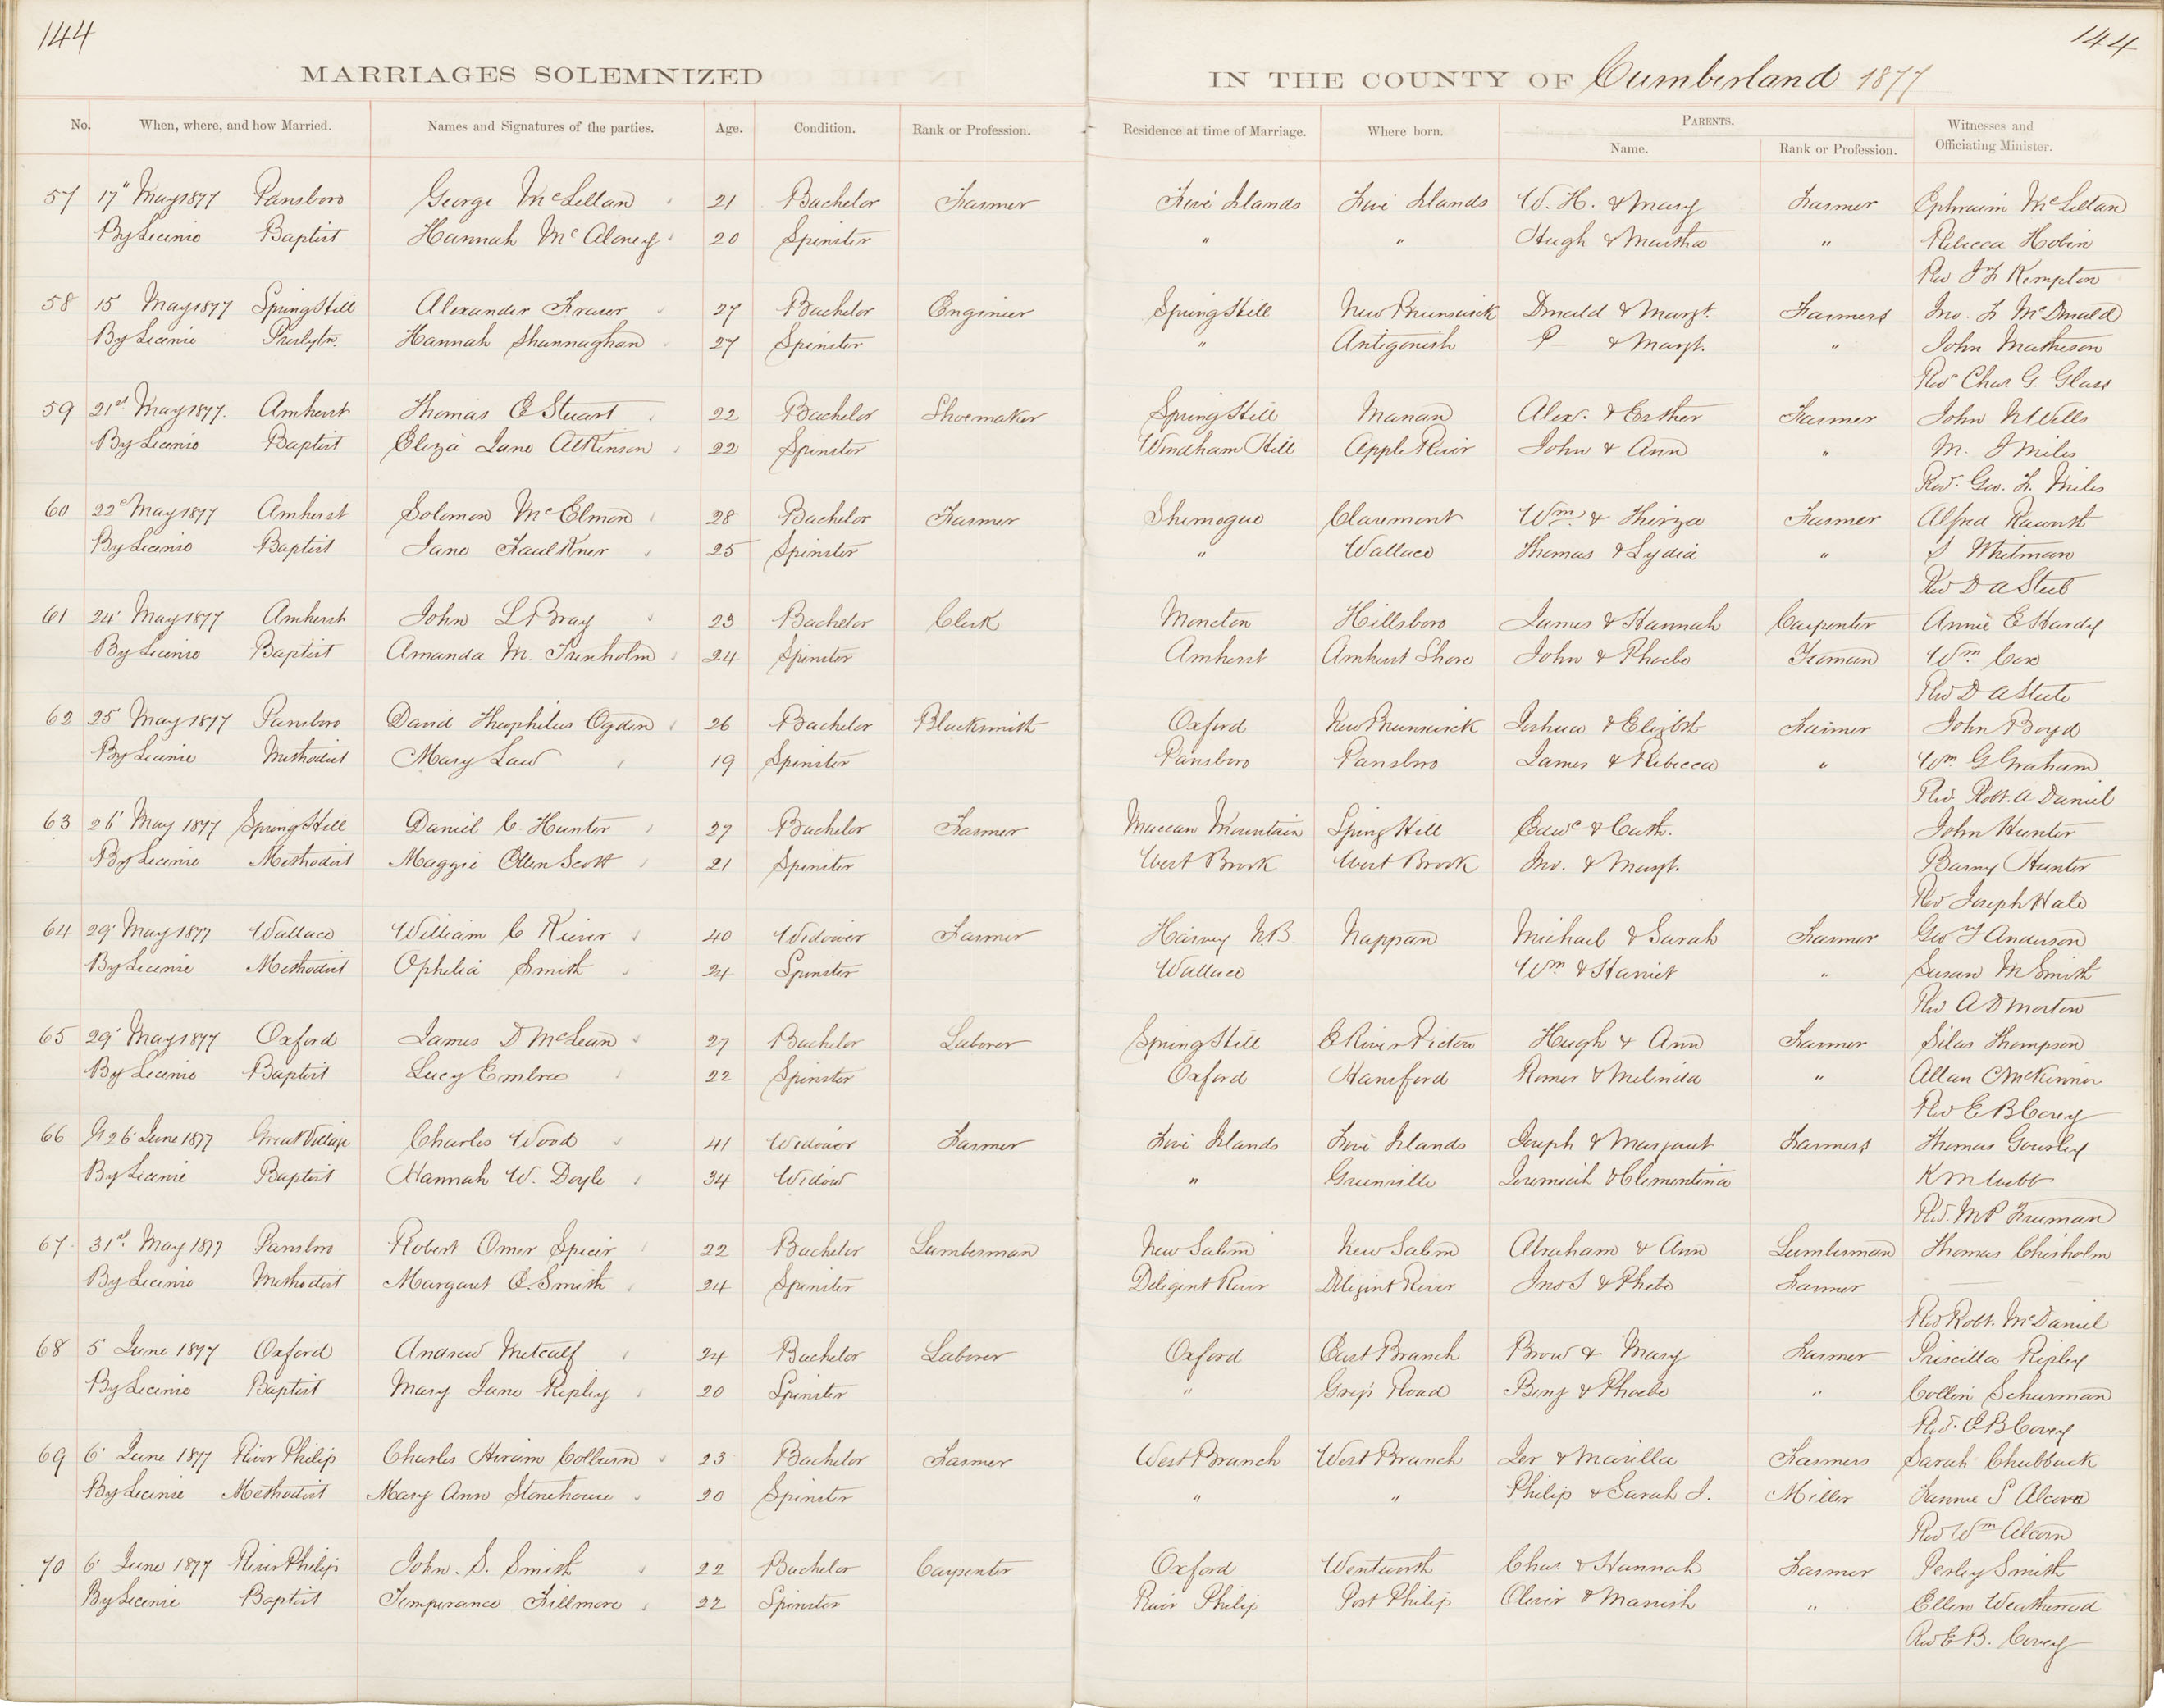 144
144
MARRIAGES SOLEMNIZED
IN THE COUNTY OF Cumberland 1877
No. When, where, and how Married. Names and Signatures of the parties. Age. Condition. Rank or Profession. Residence at time of Marriage. Where born. PARENTS. Name. Rank or Profession. Witnesses and Officiating Minister.
57 17" May 1877 Parrsboro George McLellan 21 Bachelor Farmer Five Islands Five Islands W. H. & Mary Farmer Ephraim McLellan
By Licence Baptist Hannah McAloney 20 Spinster " " Hugh & Martha " Rebecca Hobin
Rev J F Kempton
58 15 May 1877 Spring Hill Alexander Fraser 27 Bachelor Engineer Spring Hill New Brunswick Donald & Margt. Farmers Jno. F McDonald
By Licence Presbytn. Hannah Shannaghan 27 Spinster " Antigonish P— & Margt. " John Matheson
Revd Chas G. Glass
59 21st May 1877. Amherst Thomas E Stuart 22 Bachelor Shoemaker Spring Hill Manan Alexr. & Esther Farmer John N Wells
By Licence Baptist Eliza Jane Atkinson 22 Spinster Windham Hill Apple River John & Ann " M. J Miles
Rev. Geo. F. Miles
60 22d May 1877 Amherst Solomon McElmon 28 Bachelor Farmer Shemogue Claremont Wm. & Thirza Farmer Alfred
By Licence Baptist Jane Faulkner 25 Spinster " Wallace Thomas & Lydia " S Whitman
Rev D A Steele
61 24' May 1877 Amherst John L Bray 23 Bachelor Clerk Moncton Hillsboro James & Hannah Carpenter Annie E Hardy
By Licence Baptist Amanda M. Trenholm 24 Spinster Amherst Amherst Shore John & Phoebe Yeoman Wm. Cox
Rev D A Steele
62 25 May 1877 Parrsboro David Theophilus Ogden 26 Bachelor Blacksmith Oxford New Brunswick Joshua & Elizbth Farmer John Boyd
By Licence Methodist Mary Law 19 Spinster Parrsboro Parrsboro James & Rebecca " Wm. G Graham
Rev. Robt. A Daniel
63 26' May 1877 Spring Hill Daniel C. Hunter 27 Bachelor Farmer Maccan Mountain Spring Hill Edwd & Cath. John Hunter
By Licence Methodist Maggie Ellen Scott 21 Spinster West Brook West Brook Jno. & Margt. Barny Hunter
Rev Joseph Hale
64 29' May 1877 Wallace William C Kiever 40 Widower Farmer Harvey N.B. Nappan Michael & Sarah Farmer Geo T Anderson
By Licence Methodist Ophelia Smith 24 Spinster Wallace Wm & Harriet " Susan M Smith
Rev A D Morton
65 29' May 1877 Oxford James D McLean 27 Bachelor Laborer Spring Hill E River Pictou Hugh & Ann Farmer Silas Thompson
By Licence Baptist Lucy Embree 22 Spinster Oxford Hansford Romer & Melinda " Allan C McKinnon
Rev E B Corey
66 26' June 1877 Great Village Charles Wood 41 Widower Farmer Five Islands Five Islands Joseph & Margaret Farmers Thomas Gourley
By Licence Baptist Hannah W. Doyle 34 Widow " Greenville Jeremiah & Clementina K M Webb
Rev. M P Freeman
67. 31st. May 1877 Parrsboro Robert Omer Spicer 22 Bachelor Lumberman New Salem New Salem Abraham & Ann Lumberman Thomas Chisholm
By Licence Methodist Margaret E. Smith 24 Spinster Deligent River Diligent River Jno S & Phebe Farmer
Rev Robt. McDaniel
68 5 June 1877 Oxford Andrew Metcalf 24 Bachelor Laborer Oxford East Branch Brow & Mary Farmer Priscilla Ripley
By Licence Baptist Mary Jane Ripley 20 Spinster " Grey's Road Benj & Phoebe " Collin Schurman
Rev. E B Corey
69 6' June 1877 River Philip Charles Hiram Colburn 23 Bachelor Farmer West Branch West Branch Jer & Marilla Farmers Sarah Chubbuck
By Licence Methodist Mary Ann Stonehouse 20 Spinster " " Philip & Sarah J. Miller Fannie S Alcorn
Rev Wm Alcorn
70 6' June 1877 River Philip John. S. Smith 22 Bachelor Carpenter Oxford Wentworth Chas. & Hannah Farmer Pesley Smith
By Licence Baptist Temperance Fillmore 22 Spinster River Philip Port Philip Oliver & Mannish " Ellen Weatheread
Rev E B. Corey